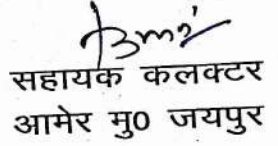 सहायक कलक्टर
आमेर मु0 जयपुर